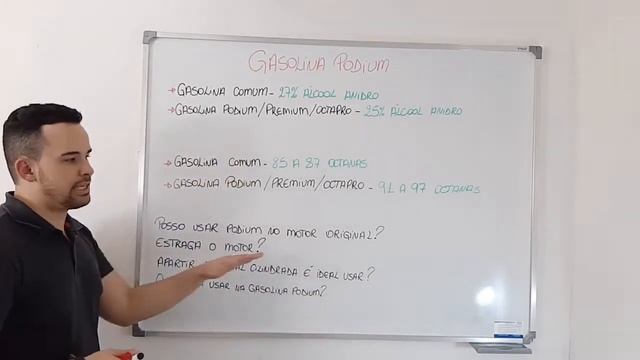 GASOLINA PODIUM
→ GASOLINA COMUM - 27% ÁLCOOL ANIDRO
→ GASOLINA PODIUM/PREMIUM/OCTAPRO - 25% ÁLCOOL ANIDRO
→ GASOLINA COMUM - 85 A 87 OCTANAS
→ GASOLINA PODIUM/PREMIUM/OCTAPRO - 91 A 97 OCTANAS
POSSO USAR PODIUM NO MOTOR ORIGINAL?
ESTRAGA O MOTOR?
APARTIR CILINDRADA É IDEAL USAR?
USAR NA GASOLINA PODIUM?